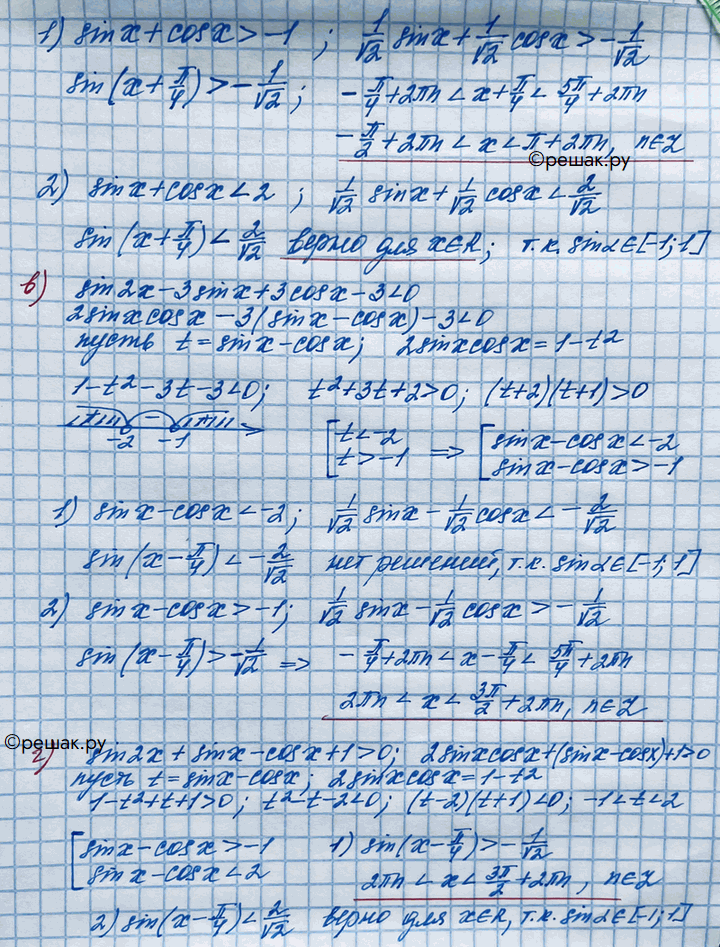 1) sinx + cosx > -1 ; 1/√2 sinx + 1/√2 cosx > -1/√2
sin(x + π/4) > -1/√2 ; -π/4 + 2πn < x + π/4 < 5π/4 + 2πn
-π/2 + 2πn < x < π + 2πn, n∈Z
©решак.ру
2) sinx + cosx < 2 ; 1/√2 sinx + 1/√2 cosx < 2/√2
sin(x + π/4) < 2/√2 верно для x∈R; т.к. sinα∈[-1;1]
в) sin2x - 3sinx + 3cosx - 3 < 0
2sinxcosx - 3(sinx - cosx) - 3 < 0
пусть t = sinx - cosx; 2sinxcosx = 1 - t²
1 - t² - 3t - 3 < 0; t² + 3t + 2 > 0; (t+2)(t+1) > 0
+ - +
-2 -1
[t < -2 => [sinx - cosx < -2
t > -1 sinx - cosx > -1
1) sinx - cosx < -2; 1/√2 sinx - 1/√2 cosx < -2/√2
sin(x - π/4) < -2/√2 нет решений, т.к. sinα∈[-1;1]
2) sinx - cosx > -1; 1/√2 sinx - 1/√2 cosx > -1/√2
sin(x - π/4) > -1/√2 => -π/4 + 2πn < x - π/4 < 5π/4 + 2πn
2πn < x < 3π/2 + 2πn, n∈Z
©решак.ру
г) sin2x + sinx - cosx + 1 > 0; 2sinxcosx + (sinx - cosx) + 1 > 0
пусть t = sinx - cosx; 2sinxcosx = 1 - t²
1 - t² + t + 1 > 0; t² - t - 2 < 0; (t-2)(t+1) < 0; -1 < t < 2
[sinx - cosx > -1 1) sin(x - π/4) > -1/√2
sinx - cosx < 2 2πn < x < 3π/2 + 2πn, n∈Z
2) sin(x - π/4) < 2/√2 верно для x∈R, т.к. sinα∈[-1;1]